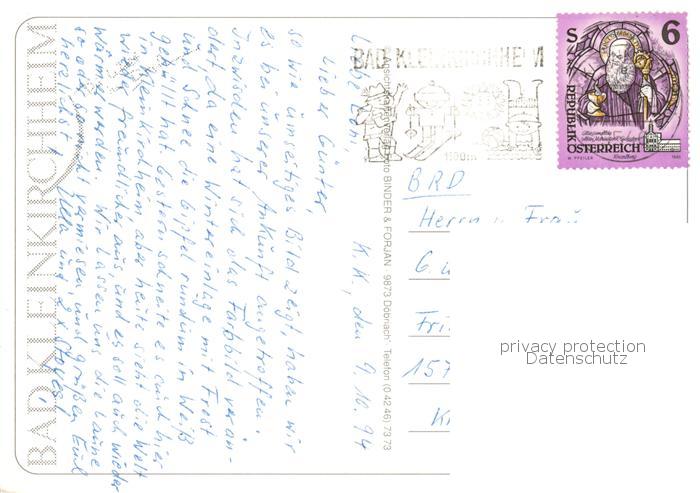 BAD KLEINKIRCHHEIM
K. K., den 9. 10. 94
Liebe Erni,
lieber Günter,
so wie umseitiges Bild zeigt, haben wir
es bei unserer Ankunft angetroffen.
Inzwischen hat sich das Farbbild verän-
dert, da ein Wintereinlage mit Frost
und Schnee die Gipfel rundum in Weiß
gehüllt hat. Gestern schneite es auch hier
in Kleinkirchheim, aber heute sieht die Welt
wieder freundlicher aus, und es soll auch wieder
wärmer werden. Wir lassen uns die Laune
so oder so nicht vermiesen und grüßen Euch
herzlichst!
und
BINDER & FORJAN 9873 Döbriach Telefon (0 42 46) 73 73
BAD KLEINKIRCHHEIM
1100m
S 6
REPUBLIK
ÖSTERREICH
W. PFEILER
BRD
Herrn u. Frau
G. u
Fri
157
K
privacy protection
Datenschutz